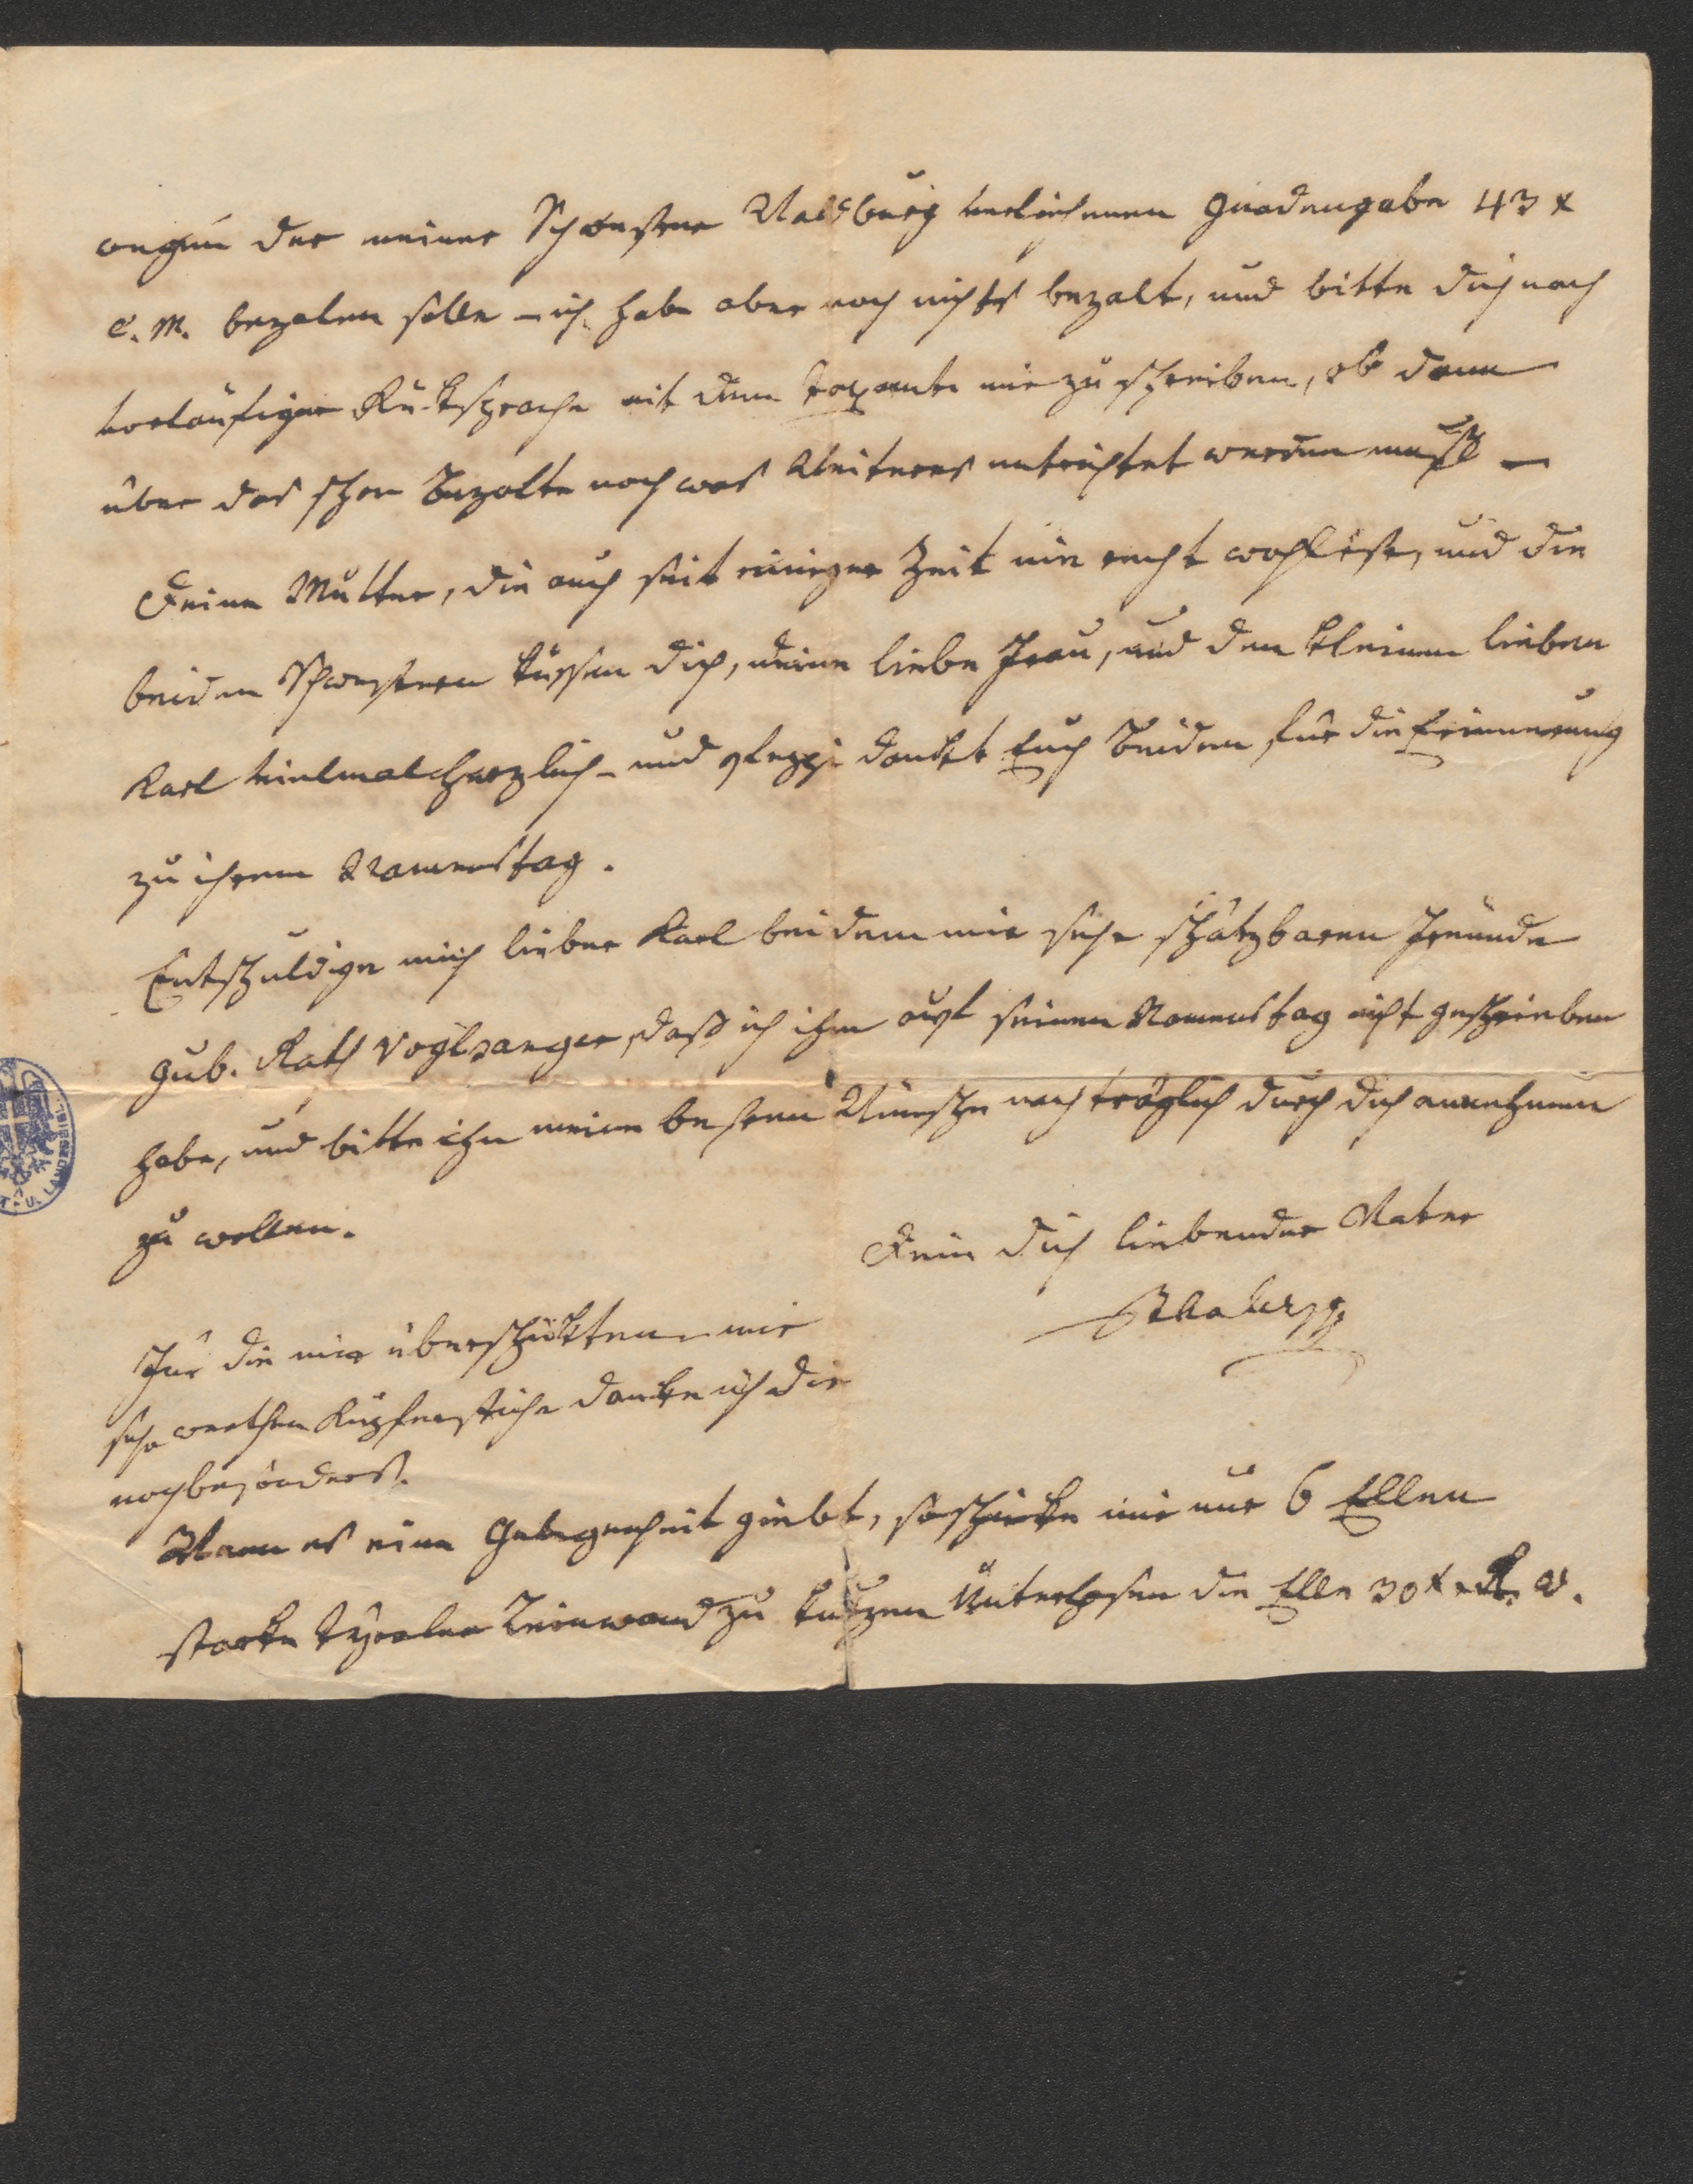 wegen der meiner Schwester Walburg verliehenen Gnadengabe 43 x
C. M. bezalen solle – ich habe aber noch nichts bezalt, und bitte dich nach
vorläufiger Rüksprache mit dem Taxamte mir zu schreiben, ob dann
über das schon Bezalte noch was Weiteres entrichtet werden muß –
Deine Mutter, die auch seit einiger Zeit nie recht wohl ist, und die
beiden Schwestern küssen dich, deine liebe Frau, und den kleinen lieben
Karl vielmal herzlich – und Peppi dankt Euch Beiden für die Erinnerung
zu ihrem Namenstag.
Entschuldige mich lieber Karl bei dem mir sehr schätzbaren Freunde
Gub. Rath Voglsanger, daß ich ihm auf seinen Namenstag nicht geschrieben
habe, und bitte ihn meine besten Wünsche nachträglich durch dich annehmen
zu wollen.
Dein dich liebender Vater
Für die mir überschikten mir
sehr werthen Kupferstiche danke ich dir
noch besonders.
Wann es eine Gelegenheit giebt, so schicke mir nur 6 Ellen
starke Tyroler Leinwand zu kurzen Unterhosen die Elle 30 x R. W.